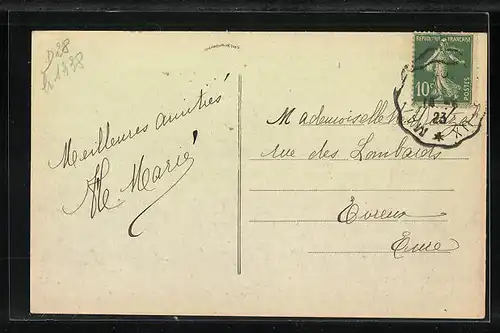 D28
Meilleures amitiés
Marie
REPUBLIQUE FRANÇAISE
10c
POSTES
23
Mademoiselle
rue des Lombards
Evreux
Eure